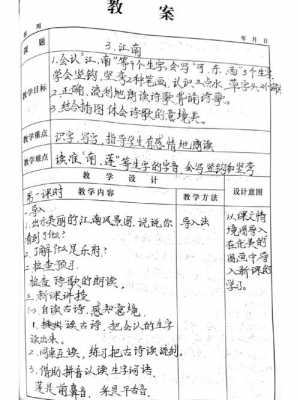 教 案
年 月 日
课 题
3.江南
教学目标
1.会认“江、南”等9个生字,会写“可、东、西”3个生字
学会竖钩、竖弯2种笔画,认识三点水、草字头2个偏旁
2.正确、流利地朗读诗歌背诵诗歌。
3.结合插图体会诗歌的意境美。
教学重点
识字、写字、指导学生有感情地朗读
教学难点
读准“南、莲”等生字的字音 会写竖钩和竖弯
教 学 设 计
第一课时
教 学 内 容
教 学 方 法
设计意图
一导入
1.出示美丽的江南风景图,说说你
看到了什么?
2.了解什么是乐府?
二 检查预习
检查诗歌的朗读。
三 新课讲授
自读古诗,感知意境。
1.读古诗,把会认的生字
读出来。
2.同桌互读,练习把古诗读流利。
3.借助拼音认读生字词语。
莲是前鼻音 采是平舌音
导入法
以课文情
境图导入
在优美的
画面中导
入新课的
学习。